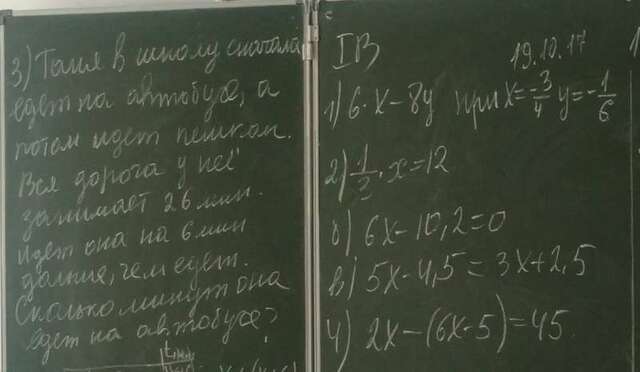 3) Таня в школу сначала
едет на автобусе, а
потом идет пешком.
Вся дорога у неё
занимает 26 мин.
Идет она на 6 мин
дольше, чем едет.
Сколько минут она
едет на автобусе?
I В 19.10.17
1) 6·x-8y при x=-3/4 y=-1/6
2) 1/3·x=12
б) 6x-10,2=0
в) 5x-4,5=3x+2,5
4) 2x-(6x-5)=45